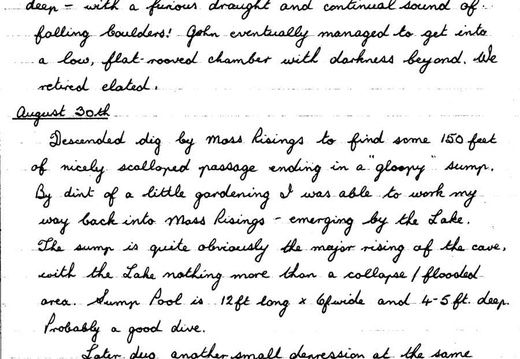 deep - with a furious draught and continual sound of
falling boulders! John eventually managed to get into
a low, flat-rooved chamber with darkness beyond. We
retired elated.
August 30th
Descended dig by Moss Risings to find some 150 feet
of nicely scalloped passage ending in a "gloopy" sump.
By dint of a little gardening I was able to work my
way back into Moss Risings - emerging by the Lake.
The sump is quite obviously the major rising of the cave,
with the Lake nothing more than a collapse / flooded
area. Sump Pool is 12ft long x 6ft wide and 4-5 ft. deep.
Probably a good dive.
Later dug another small depression at the same